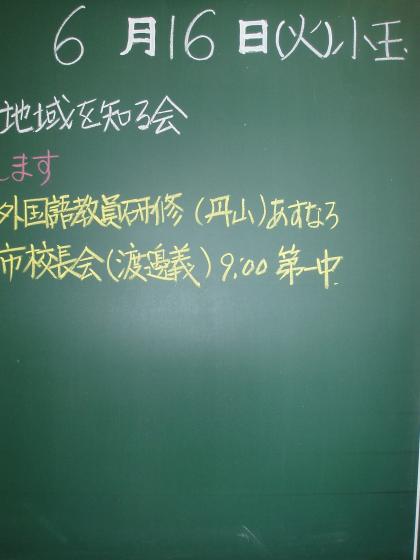 6月16日(火)小玉
地域を知る会
します
外国語教員研修(丹山)あすなろ
市校長会(渡邉義)9:00 第一中